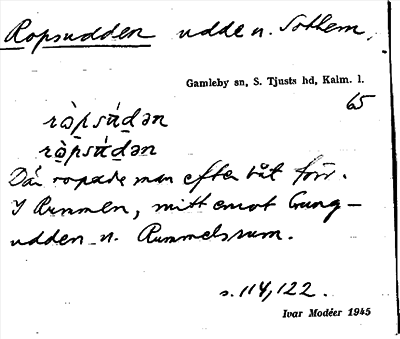 Ropsudden udde n. Sothem,
Gamleby sn, S. Tjusts hd, Kalm. l.
65
rὼpsád̲ən
rὼpsád̲ən
Där ropade man efter båt förr.
I Rummen, mitt emot Gung-
udden n. Rummelsrum.
s. 114, 122.
Ivar Modéer 1945